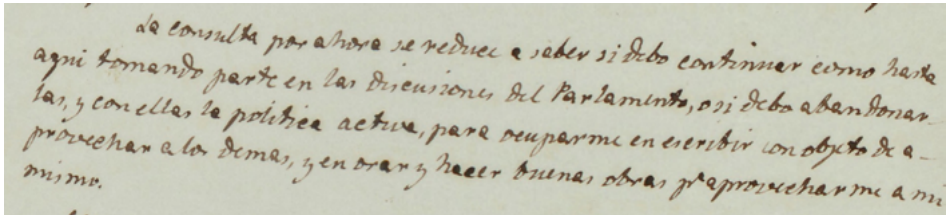 La consulta por ahora se reduce a saber si debo continuar como hasta
aqui tomando parte en las discusiones del Parlamento, o si debo abandonar-
las, y con ellas la politica activa, para ocuparme en escribir con objeto de a-
provechar a los demas, y en orar y hacer buenas obras pª aprovecharme a mi
mismo.